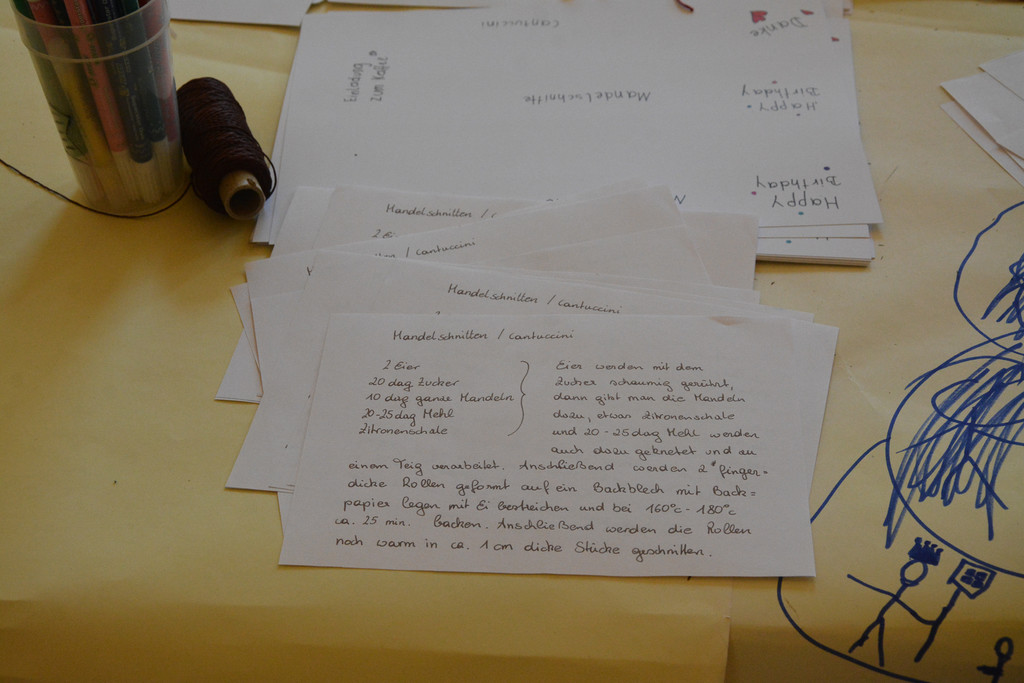 Cantuccini
Danke
Einladung
zum Kaffee
Mandelschnitte
Happy
Birthday
Happy
Birthday
Mandelschnitten /
2 Ei
/ cantuccini
Mandelschnitten / cantuccini
Mandelschnitten / cantuccini
2 Eier
20 dag Zucker
10 dag ganze Mandeln
20-25 dag Mehl
Zitronenschale
Eier werden mit dem
Zucker schaumig gerührt,
dann gibt man die Mandeln
dazu, etwas Zitronenschale
und 20-25 dag Mehl werden
auch dazu geknetet und zu
einem Teig verarbeitet. Anschließend werden 2 finger=
dicke Rollen geformt auf ein Backblech mit Back=
papier legen mit Ei bestreichen und bei 160°C - 180°C
ca. 25 min. Backen. Anschließend werden die Rollen
noch warm in ca. 1 cm dicke Stücke geschnitten.